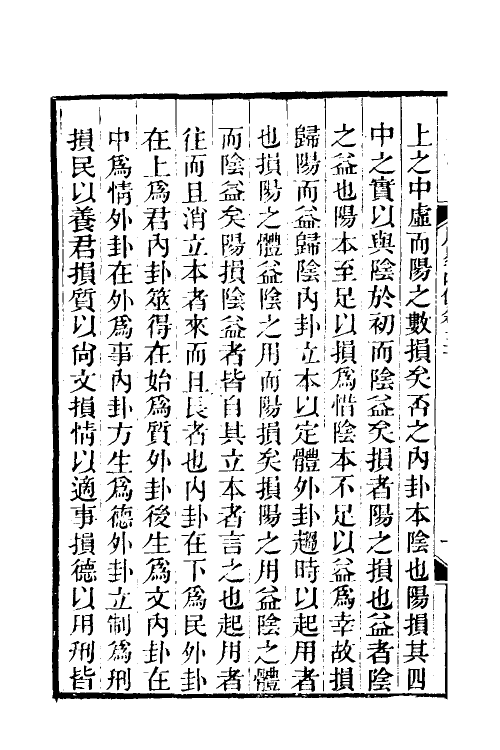 上之中虛而陽之數損矣否之內卦本陰也陽損其四
中之實以與陰於初而陰益矣損者陽之損也益者陰
之益也陽本至足以損爲惜陰本不足以益爲幸故損
歸陽而益歸陰內卦立本以定體外卦趨時以起用者
也損陽之體益陰之用而陽損矣損陽之用益陰之體
而陰益矣陽損陰益者皆自其立本者言之也起用者
往而且消立本者來而且長者也內卦在下爲民外卦
在上爲君內卦筮得在始爲質外卦後生爲文內卦在
中爲情外卦在外爲事內卦方生爲德外卦立制爲刑
損民以養君損質以尙文損情以適事損德以用刑皆